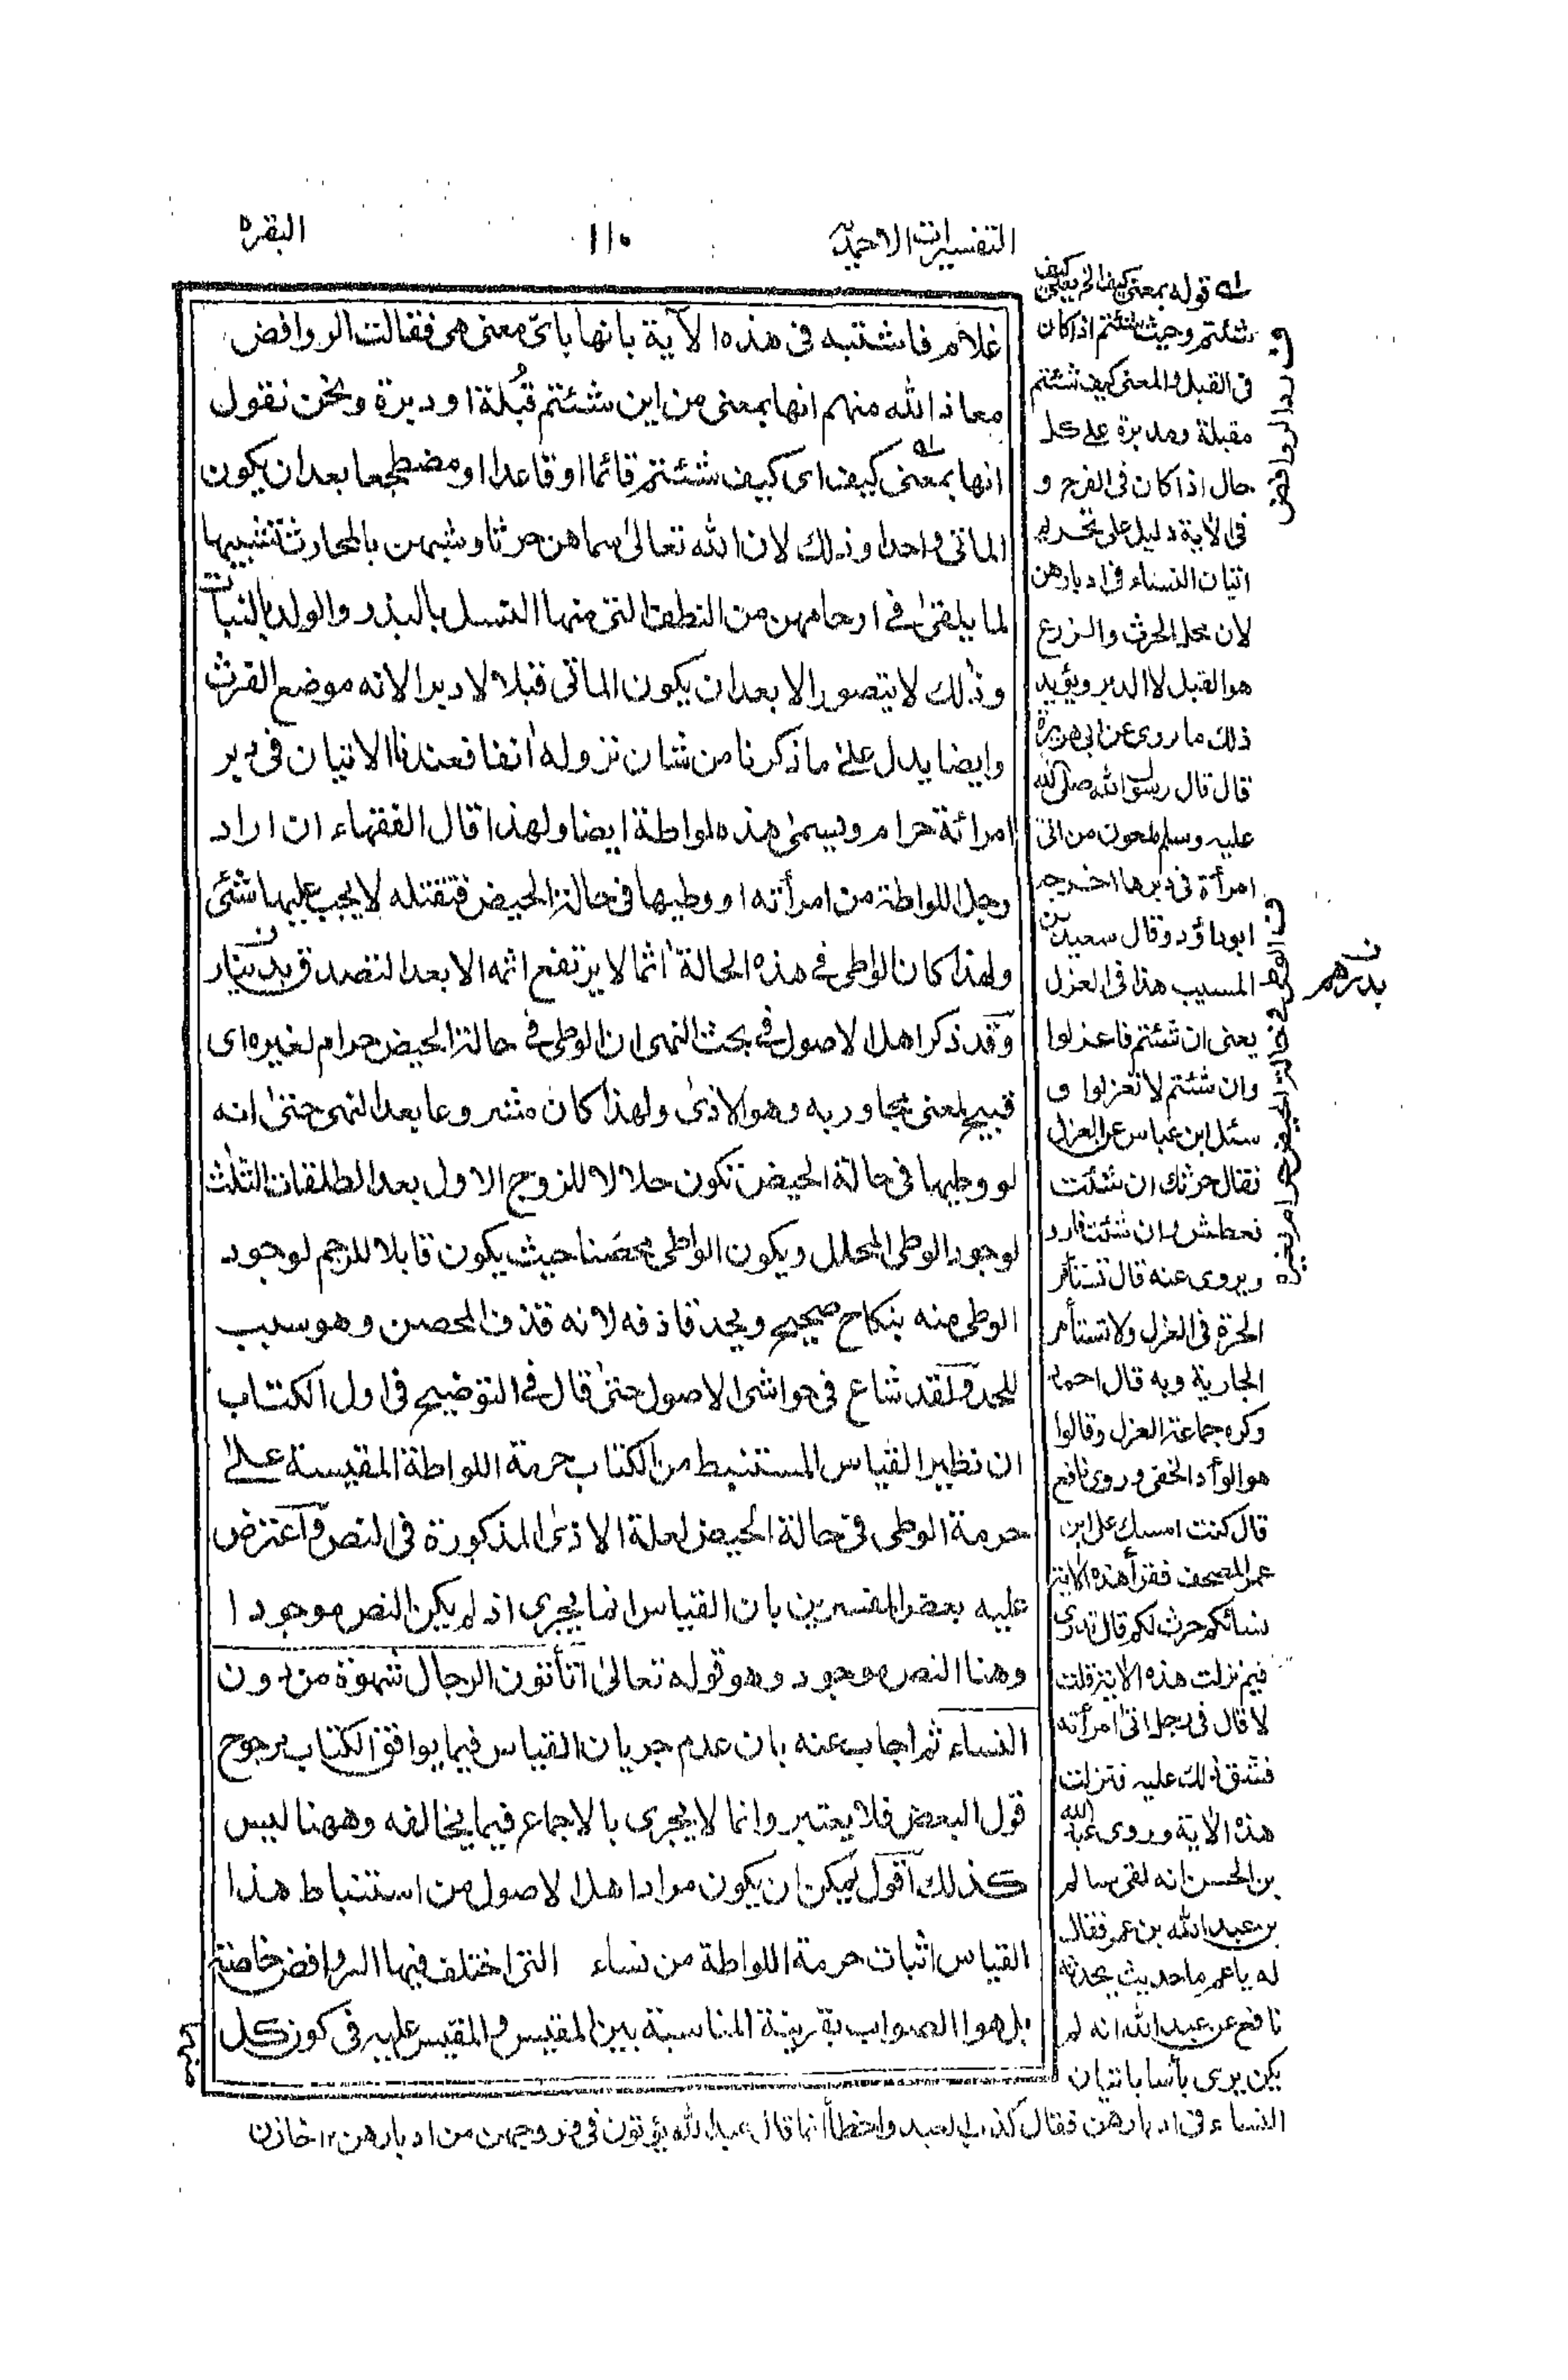 التفسيرات الاحمدية
١١٠
البقره
غلام فاشتبه فى هذه الآية بانها باىّ معنى هى فقالت الروافض
معاذ الله منهم انها بمعنى من اين شئتم قُبلة او دبرة ونحن نقول
انها بمعنى كيف اى كيف شئتم قائما او قاعدا او مضطجعا بعد ان يكون
الماتى واحدا وذلك لان الله تعالىٰ سماهن حرثا وشبههن بالمحارث تشبيها
لما يلقىٰ فى ارحامهن من النطف التى منها النسل بالبذر والولد بالنبات
وذٰلك لا يتصور الا بعد ان يكون الماتى قبلا لا دبرا لانه موضع الفرث
وايضا يدل علىٰ ما ذكرنا من شان نزوله اٰنفا فعندنا الاتيان فى دبر
امرائة حرام ويسمىٰ هذه لواطة ايضا ولهذا قال الفقهاء ان اراد
رجل اللواطة من امرأته او وطيها فى حالة الحيض فتقتله لا يجب عليها شئى
ولهذا كان الواطى فى هذه الحالة اٰثما لا يرتفع اثمه الا بعد التصدق بدينار
وقد ذكر اهل الاصول فى بحث النهى ان الوطى فى حالة الحيض حرام لغيره اى
قبيح لمعنى مجاور به وهو الاذىٰ ولهذا كان مشروعا بعد النهى حتىٰ انه
لو وطيها فى حالة الحيض تكون حلالا للزوج الاول بعد الطلقات الثلٰث
لوجود الوطى المحلل ويكون الواطى محصَنا حيث يكون قابلا للرجم لوجود
الوطى منه بنكاح صحيح ويحد قاذفه لانه قذف المحصن وهو سبب
للحد ولقد شاع فى حواشى الاصول حتىٰ قال فى التوضيح فى اول الكتاب
ان نظير القياس المستنبط من الكتاب حرمة اللواطة المقيسة علىٰ
حرمة الوطى فى حالة الحيض لعلة الاذىٰ المذكورة فى النص واعترض
عليه بعض المفسرين بان القياس انما يجرى اذ لم يكن النص موجودا
وهنا النص موجود وهو قوله تعالىٰ اتأتون الرجال شهوة من دون
النساء ثم اجاب عنه بان عدم جريان القياس فيما يوافق الكتاب مرجوح
قول البعض فلا يعتبر وانما لا يجرى بالاجماع فيما يخالفه وههنا ليس
كذلك اقول يمكن ان يكون مراد اهل الاصول من استنباط هذا
القياس اثبات حرمة اللواطة من نساء التى اختلف فيها الروافض خاصة
بل هو الصواب بقرينة المناسبة بين المقيس والمقيس عليه فى كون كل
له قوله بمعنى كيف الخ يعنى كيف
شئتم وحيث شئتم اذا كان
فى القبل والمعنى كيف شئتم
مقبلة ومدبرة على كل
حال اذا كان فى الفرج و
فى الاٰية دليل على تحريم
اتيان النساء فى ادبارهن
لان محل الحرث والزرع
هو القبل لا الدبر ويؤيد
ذلك ما روى عن ابى هريرة
قال قال رسول الله صلى الله
عليه وسلم ملعون من اتى
امرأة فى دبرها اخرجه
ابو داؤد وقال سعيد بن
المسيب هذا فى العزل
يعنى ان شئتم فاعزلوا
وان شئتم لا تعزلوا و
سئل ابن عباس عن العزل
فقال حرثك ان شئت
فعطش وان شئت فارو
ويروى عنه قال تستأمر
الحرة فى العزل ولا تستأمر
الجارية وبه قال احمد
وكره جماعة العزل وقالوا
هو الوأد الخفى وروى نافع
قال كنت امسك على ابن
عمر المصحف فقرأ هذه الاٰية
نسائكم حرث لكم قال تدرى
فيم نزلت هذه الاٰية قلت
لا قال فى رجل اتى امرأته
فشق ذلك عليه فنزلت
هذه الاٰية وروى عبد الله
بن الحسن انه لقى سالم
بن عبد الله بن عمر فقال
له يا عمر ما حديث يحدثه
نافع عن عبد الله انه لم
يكن يرى بأسا باتيان
النساء فى ادبارهن فقال كذب العبد واخطأ انما قال عبد الله يؤتون فى فروجهن من ادبارهن ١٢ خازن
ف الوطى فى حالة الحيض حرام لغيره
ن
بدرهم